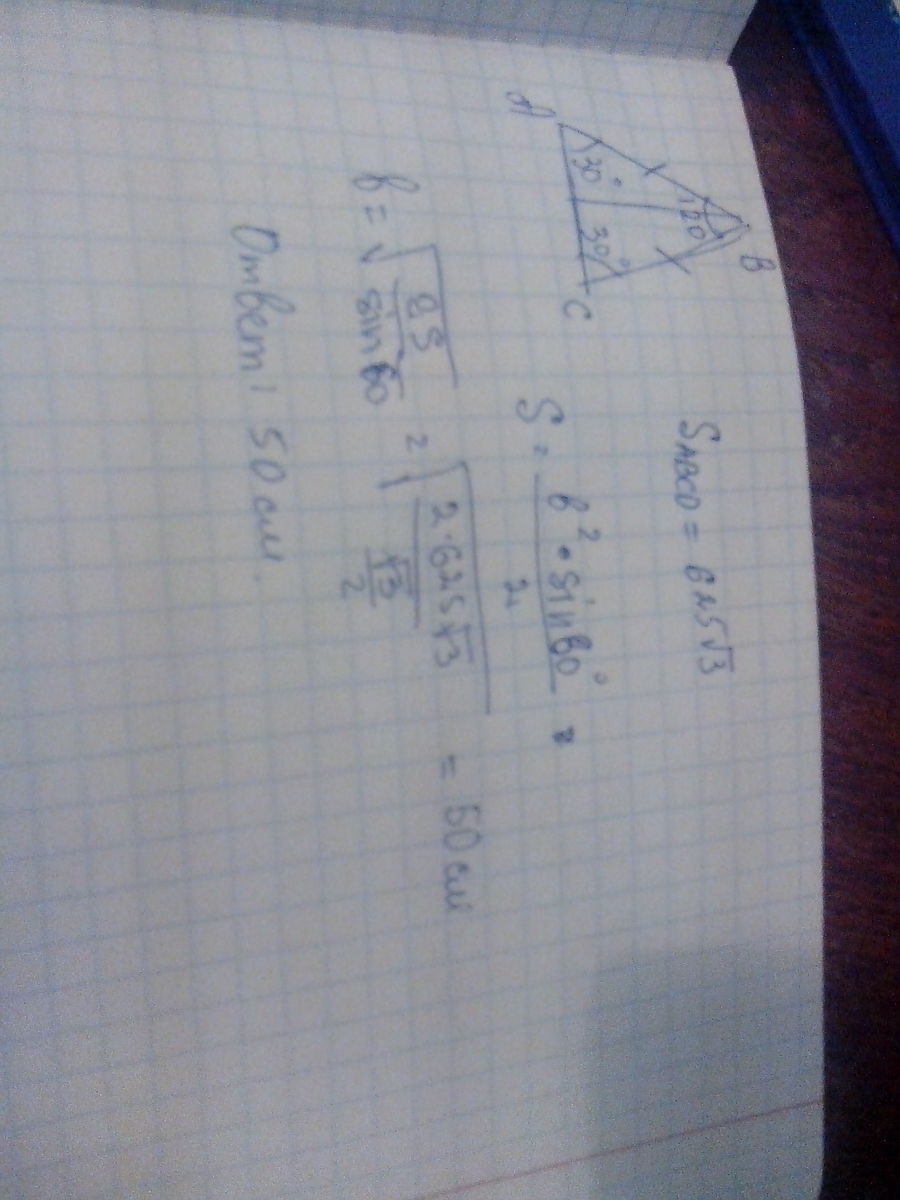 B
A
C
120
30°
30°
S ABCD = 625√3
S = b² · sin60° / 2 =
b = √(2S / sin60) = √(2·625√3 / (√3 / 2)) = 50 см
Ответ: 50 см.